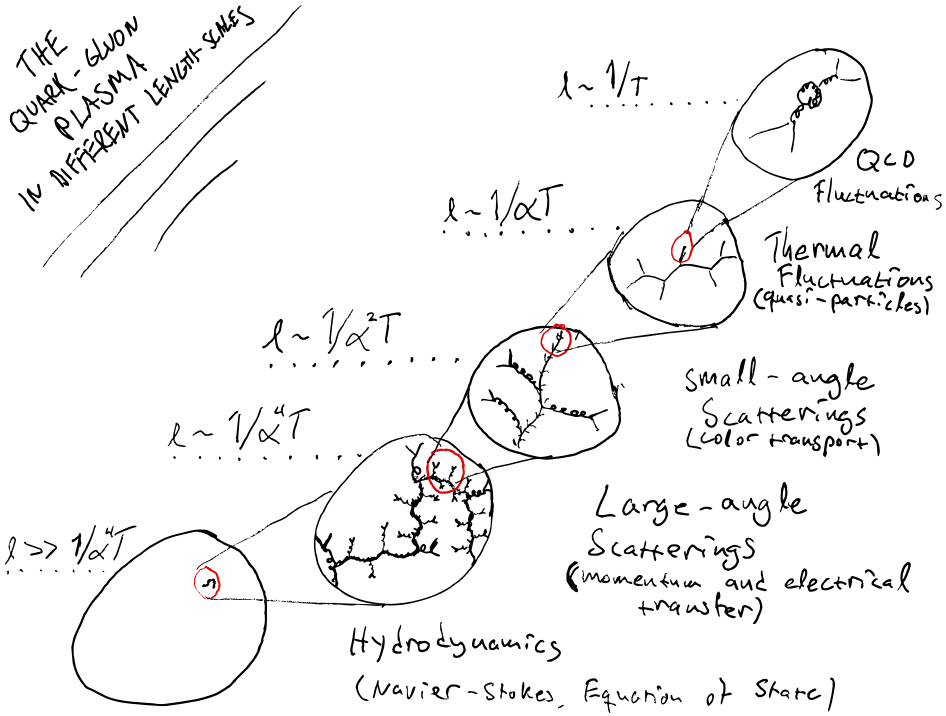 THE
QUARK-GLUON
PLASMA
IN DIFFERENT LENGTH SCALES
l ~ 1/T
QCD
Fluctuations
l ~ 1/αT
Thermal
Fluctuations
(quasi-particles)
l ~ 1/α²T
small-angle
Scatterings
(color transport)
l ~ 1/α⁴T
Large-angle
Scatterings
(momentum and electrical
transfer)
l >> 1/α⁴T
Hydrodynamics
(Navier-Stokes, Equation of State)